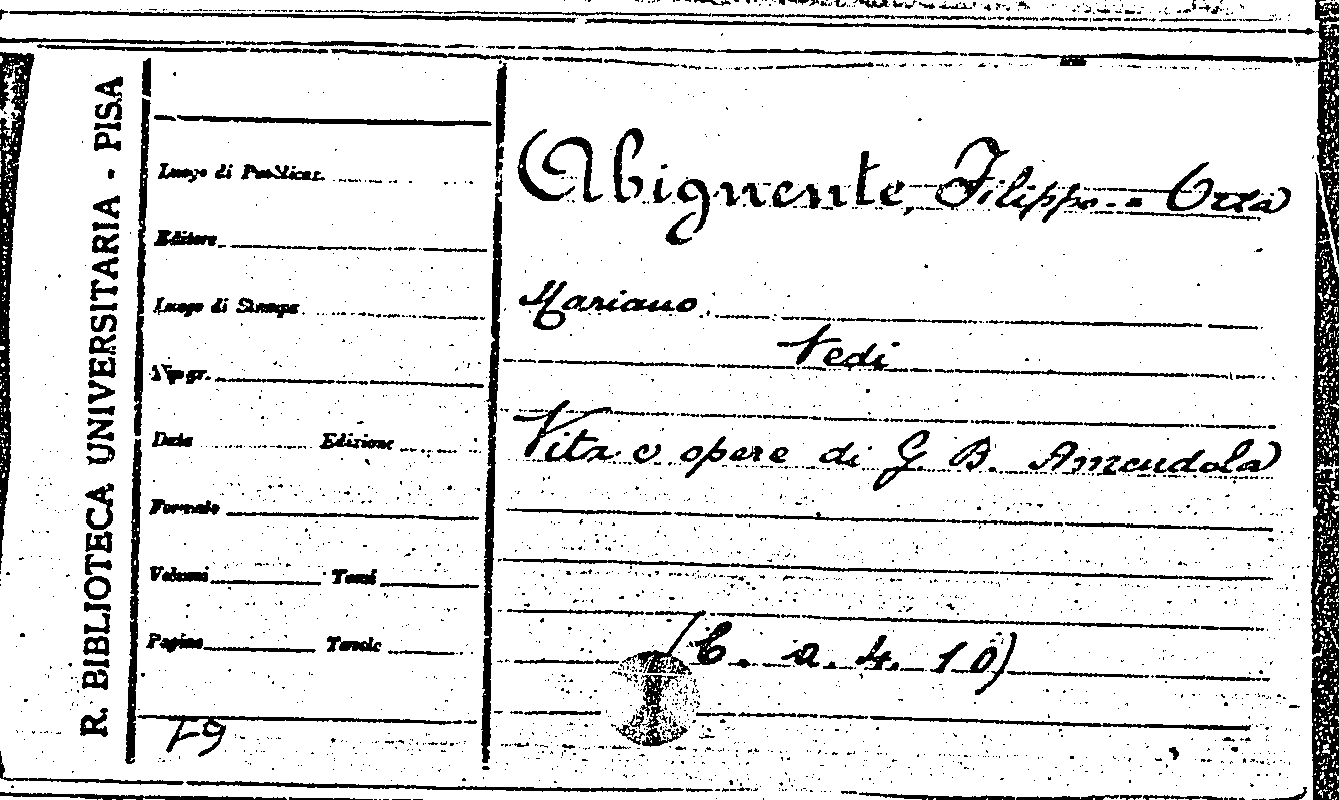 R. BIBLIOTECA UNIVERSITARIA - PISA
Luogo di Pubblicaz.
Editore
Luogo di Stampa
Tipogr.
Data Edizione
Formato
Volumi Tomi
Pagine Tavole
Abignente, Filippo. - Orta
Mariano
Vedi
Vita e opere di G. B. Amendola
(C. a. 4. 10)